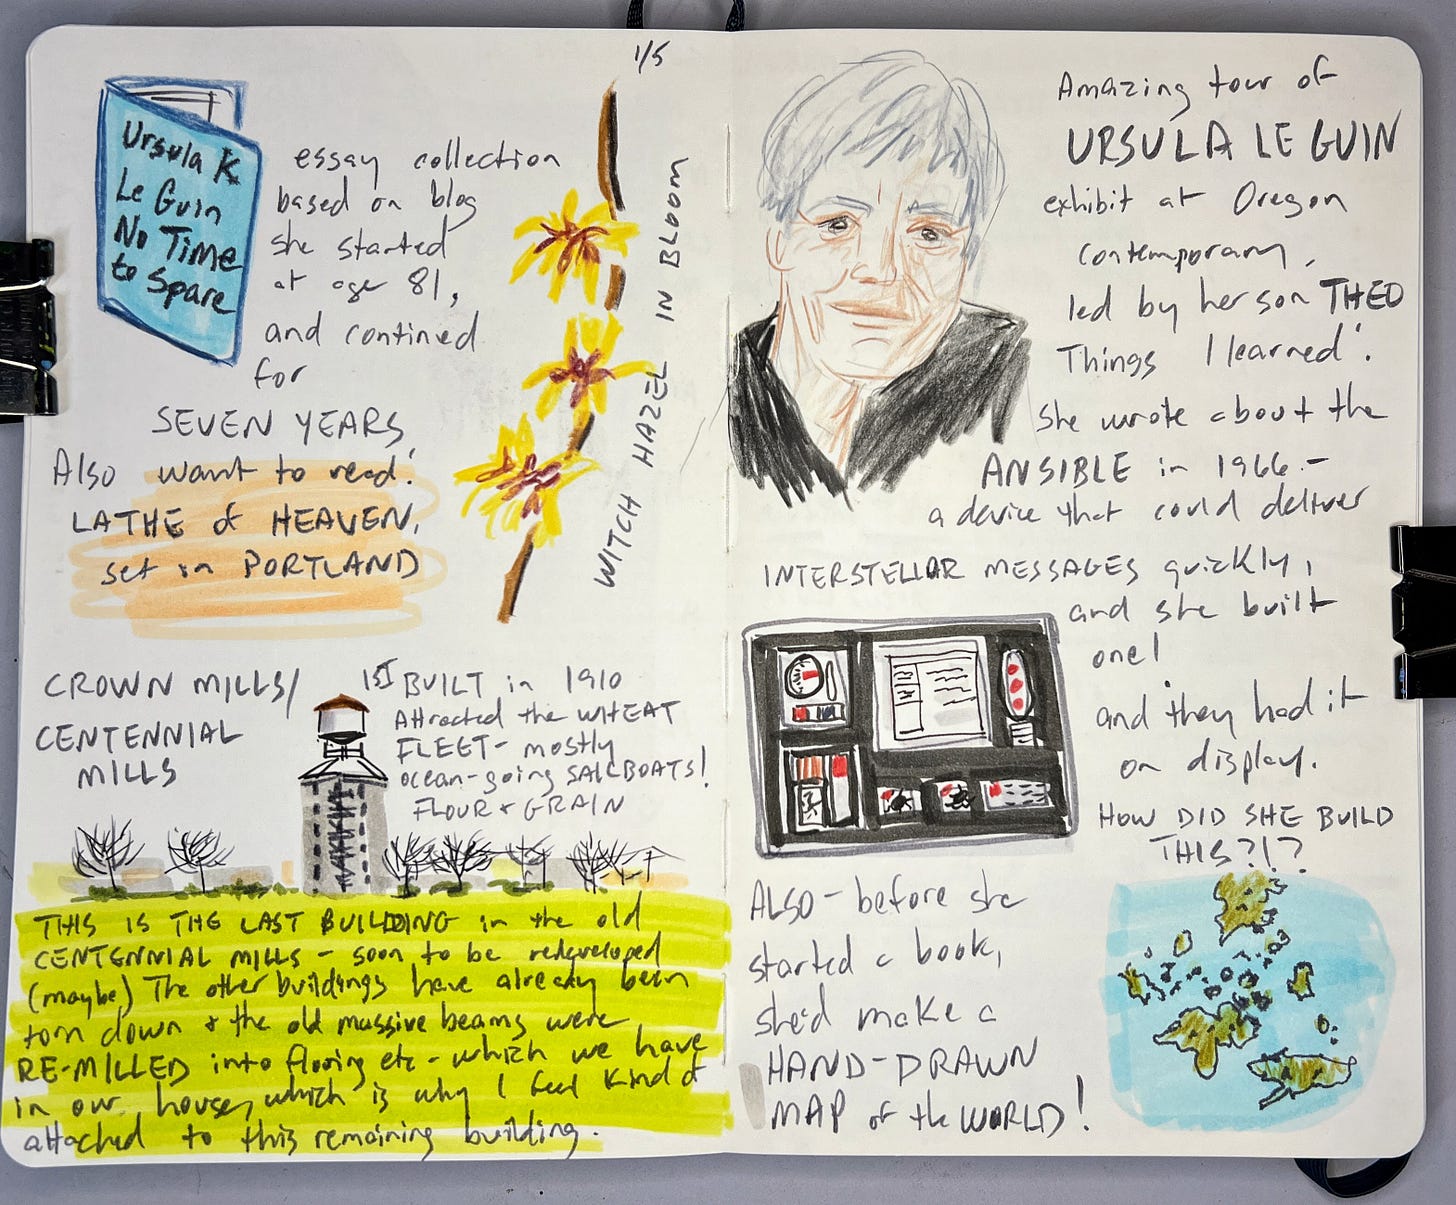 1/5
Ursula K
Le Guin
No Time
to Spare
essay collection
based on blog
she started
at age 81,
and contined
for
SEVEN YEARS
Also want to read:
LATHE of HEAVEN,
set in PORTLAND
WITCH HAZEL IN BLOOM
CROWN MILLS/
CENTENNIAL
MILLS
1ST BUILT in 1910
Attracted the WHEAT
FLEET - mostly
ocean-going SAILBOATS!
FLOUR + GRAIN
THIS IS THE LAST BUILDING in the old
CENTENNIAL MILLS - soon to be redeveloped
(maybe) The other buildings have already been
torn down + the old massive beams were
RE-MILLED into flooring etc - which we have
in our house, which is why I feel kind of
attached to this remaining building.
Amazing tour of
URSULA LE GUIN
exhibit at Oregon
contemporary,
led by her son THEO
Things I learned:
She wrote about the
ANSIBLE in 1966 -
a device that could deliver
INTERSTELLAR MESSAGES quickly,
and she built
one!
and they had it
on display.
HOW DID SHE BUILD
THIS?!?
ALSO - before she
started a book,
she'd make a
HAND-DRAWN
MAP of the WORLD!